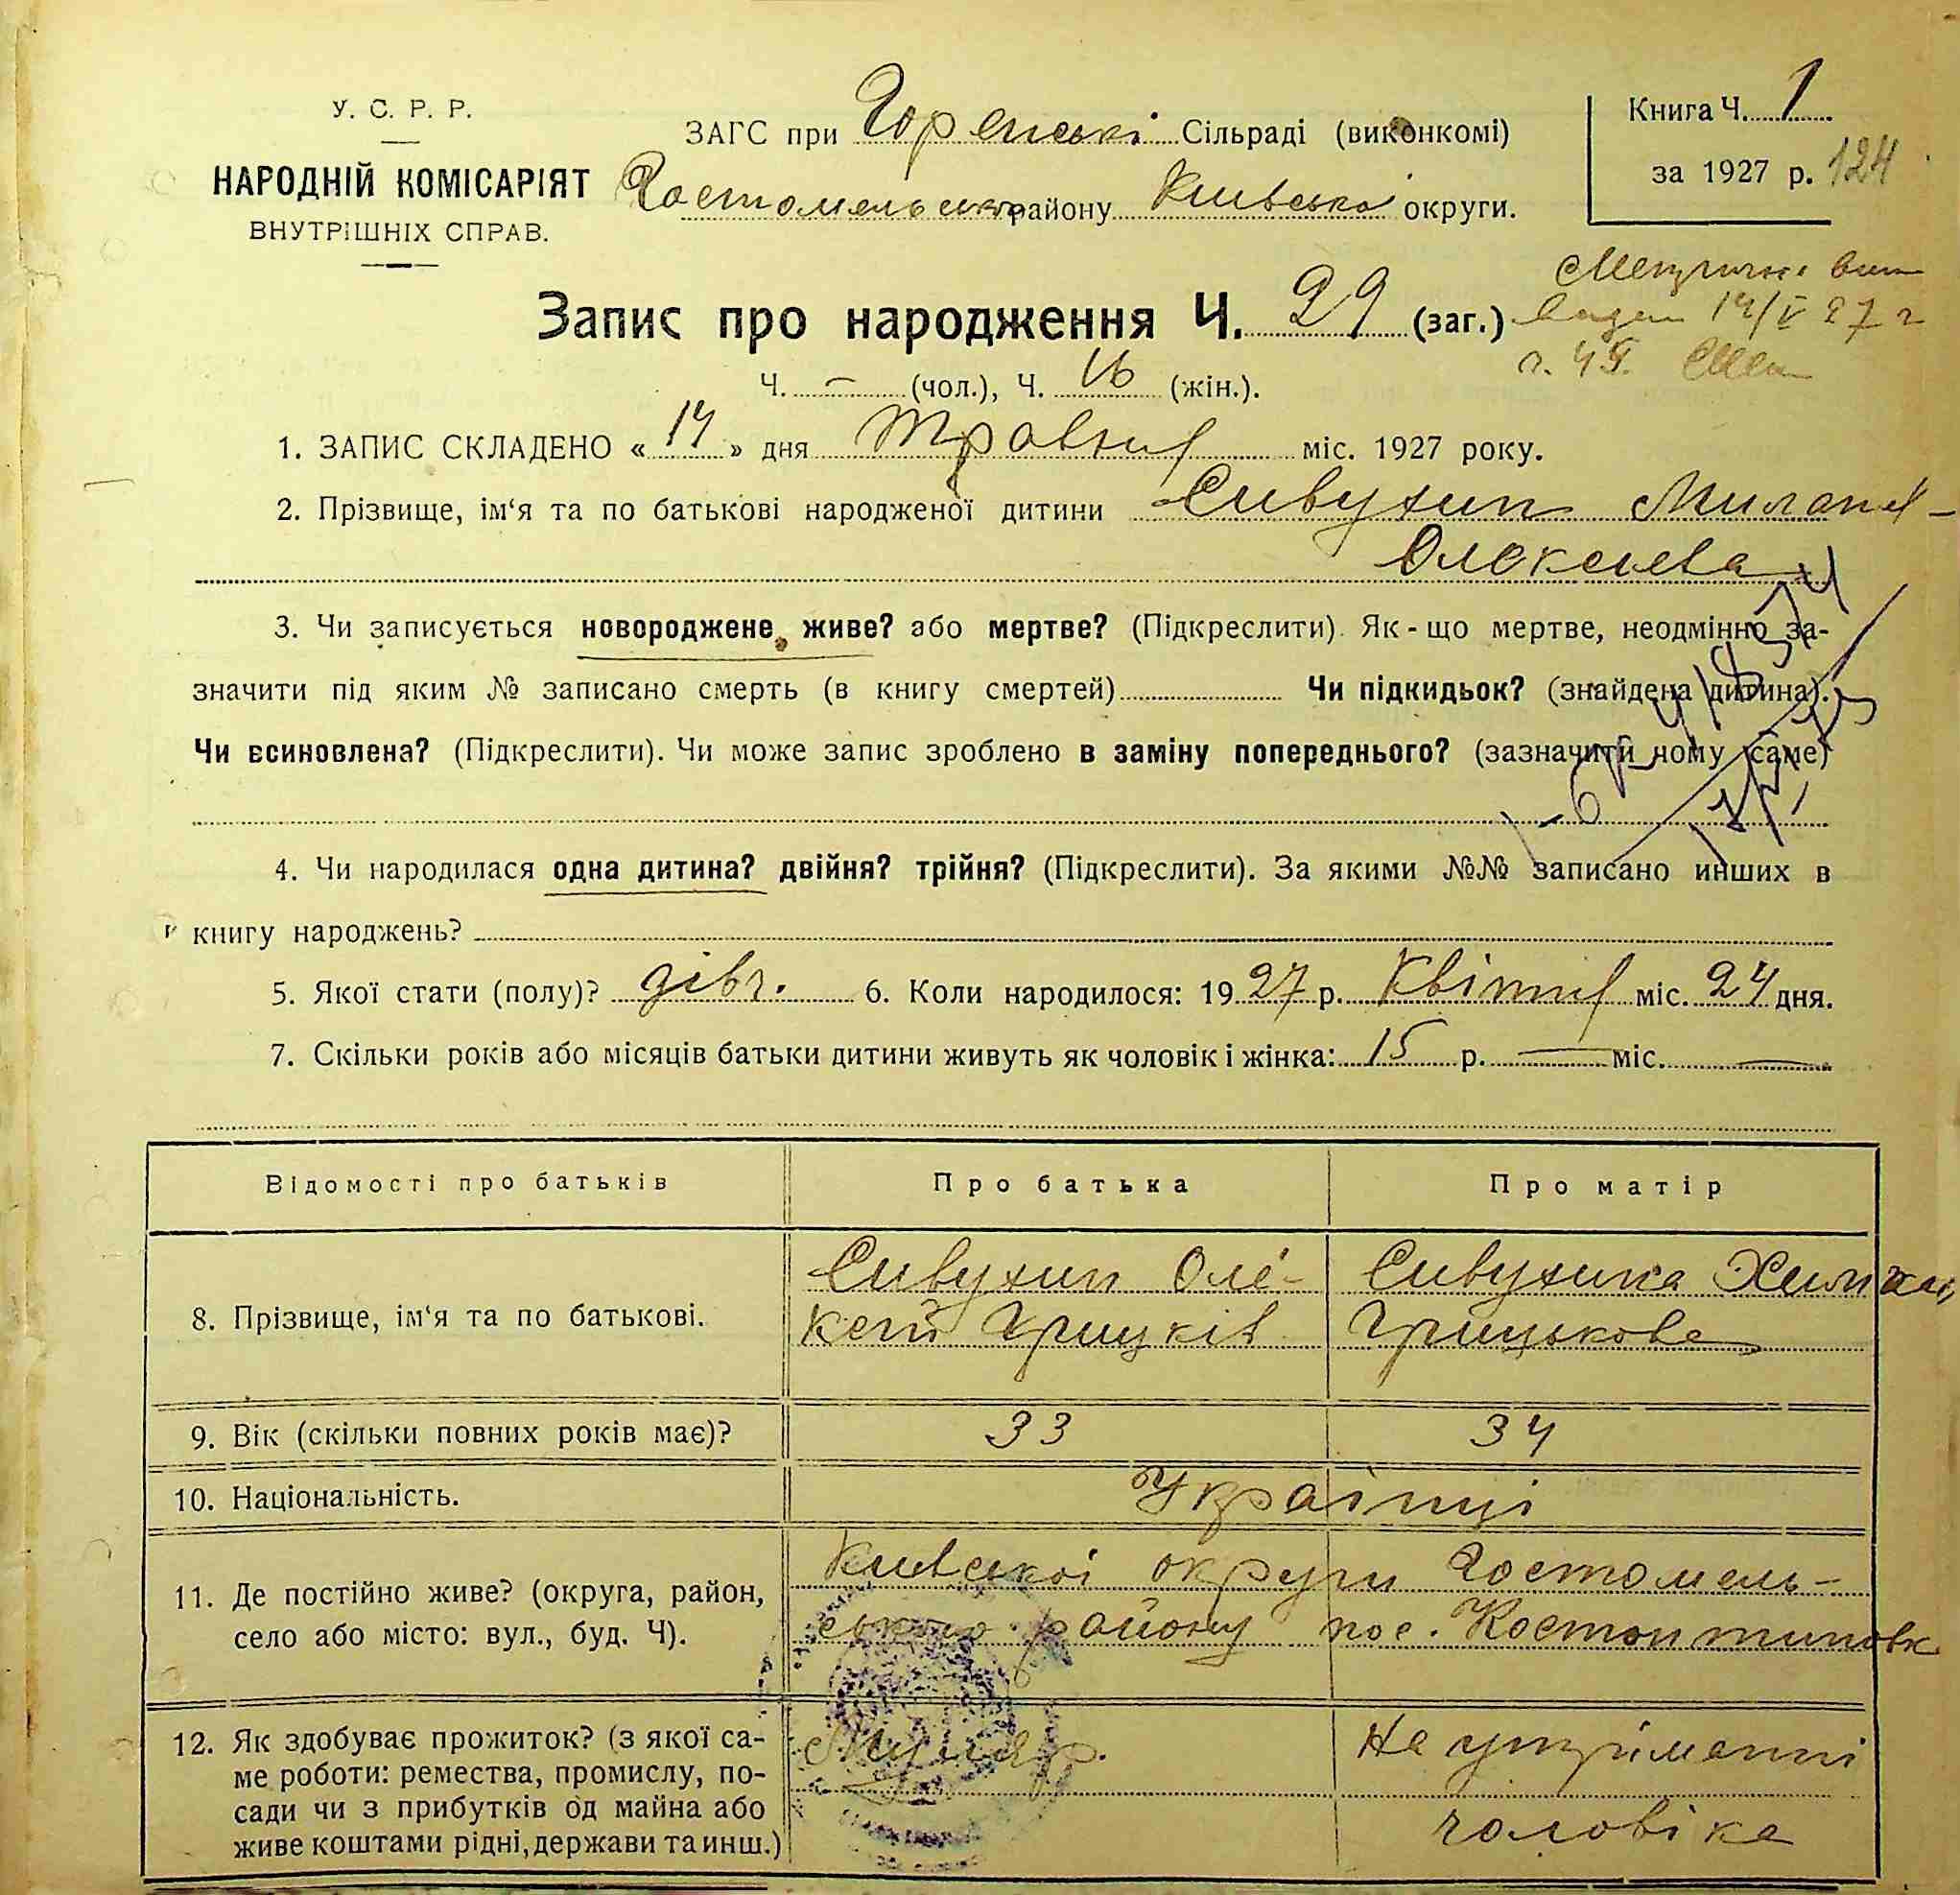 У. С. Р. Р.
НАРОДНІЙ КОМІСАРІЯТ
ВНУТРІШНІХ СПРАВ.
ЗАГС при Горенські Сільраді (виконкомі)
Гостомельськ району Київської округи.
Книга Ч. 1
за 1927 р. 124
Запис про народження Ч. 29 (заг.)
14/V 27 г
Ч. — (чол.), Ч. 16 (жін.).
1. ЗАПИС СКЛАДЕНО « 14 » дня травня міс. 1927 року.
2. Прізвище, ім‘я та по батькові народженої дитини Сивухин Миланя
Олексієва
3. Чи записується новороджене, живе? або мертве? (Підкреслити). Як-що мертве, неодмінно за-
значити під яким № записано смерть (в книгу смертей) Чи підкидьок? (знайдена дитина).
Чи всиновлена? (Підкреслити). Чи може запис зроблено в заміну попереднього? (зазначити чому саме)
4. Чи народилася одна дитина? двійня? трійня? (Підкреслити). За якими №№ записано инших в
книгу народжень?
5. Якої стати (полу)? дівч. 6. Коли народилося: 1927 р. Квітня міс. 24 дня.
7. Скільки років або місяців батьки дитини живуть як чоловік і жінка: 15 р. — міс. —
Відомості про батьків Про батька Про матір
8. Прізвище, ім‘я та по батькові.
Сивухин Оле-
ксій Грицків
Сивухина
Грицькова
9. Вік (скільки повних років має)? 33 34
10. Національність. Українці
11. Де постійно живе? (округа, район,
село або місто: вул., буд. Ч).
Київської округи Гостомель-
ського району пос. Костянтиновк
12. Як здобуває прожиток? (з якої са-
ме роботи: ремества, промислу, по-
сади чи з прибутків од майна або
живе коштами рідні, держави та инш.)
Муляр.
На утриманні
чоловіка